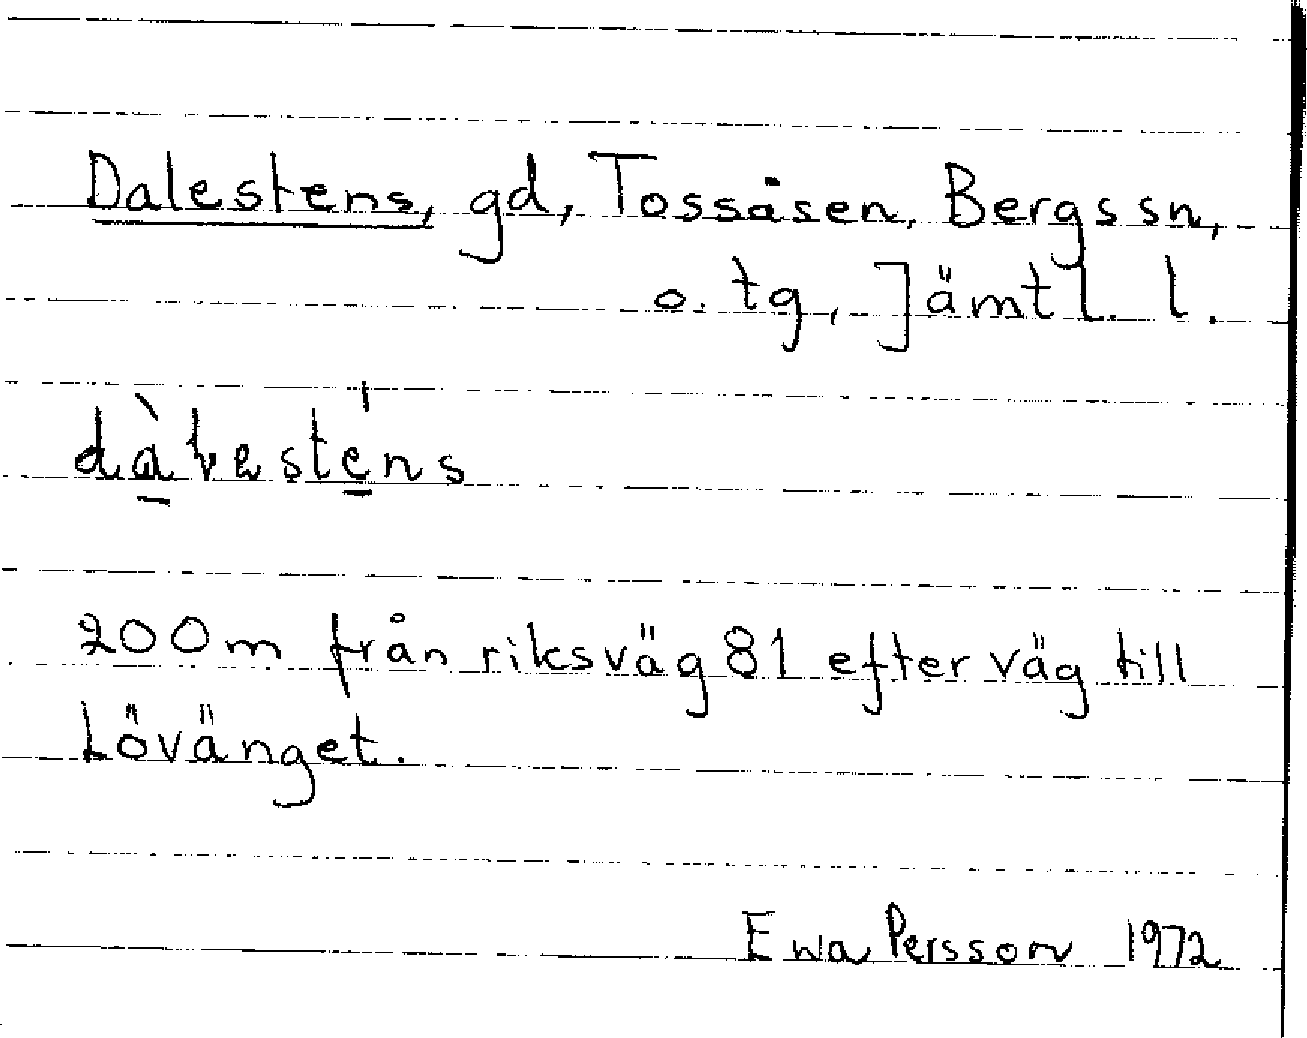 Dalestens, gd, Tossåsen, Bergs sn,
o. tg, Jämtl. l.
200 m från riksväg 81 efter väg till
Lövänget.
Ewa Persson 1972